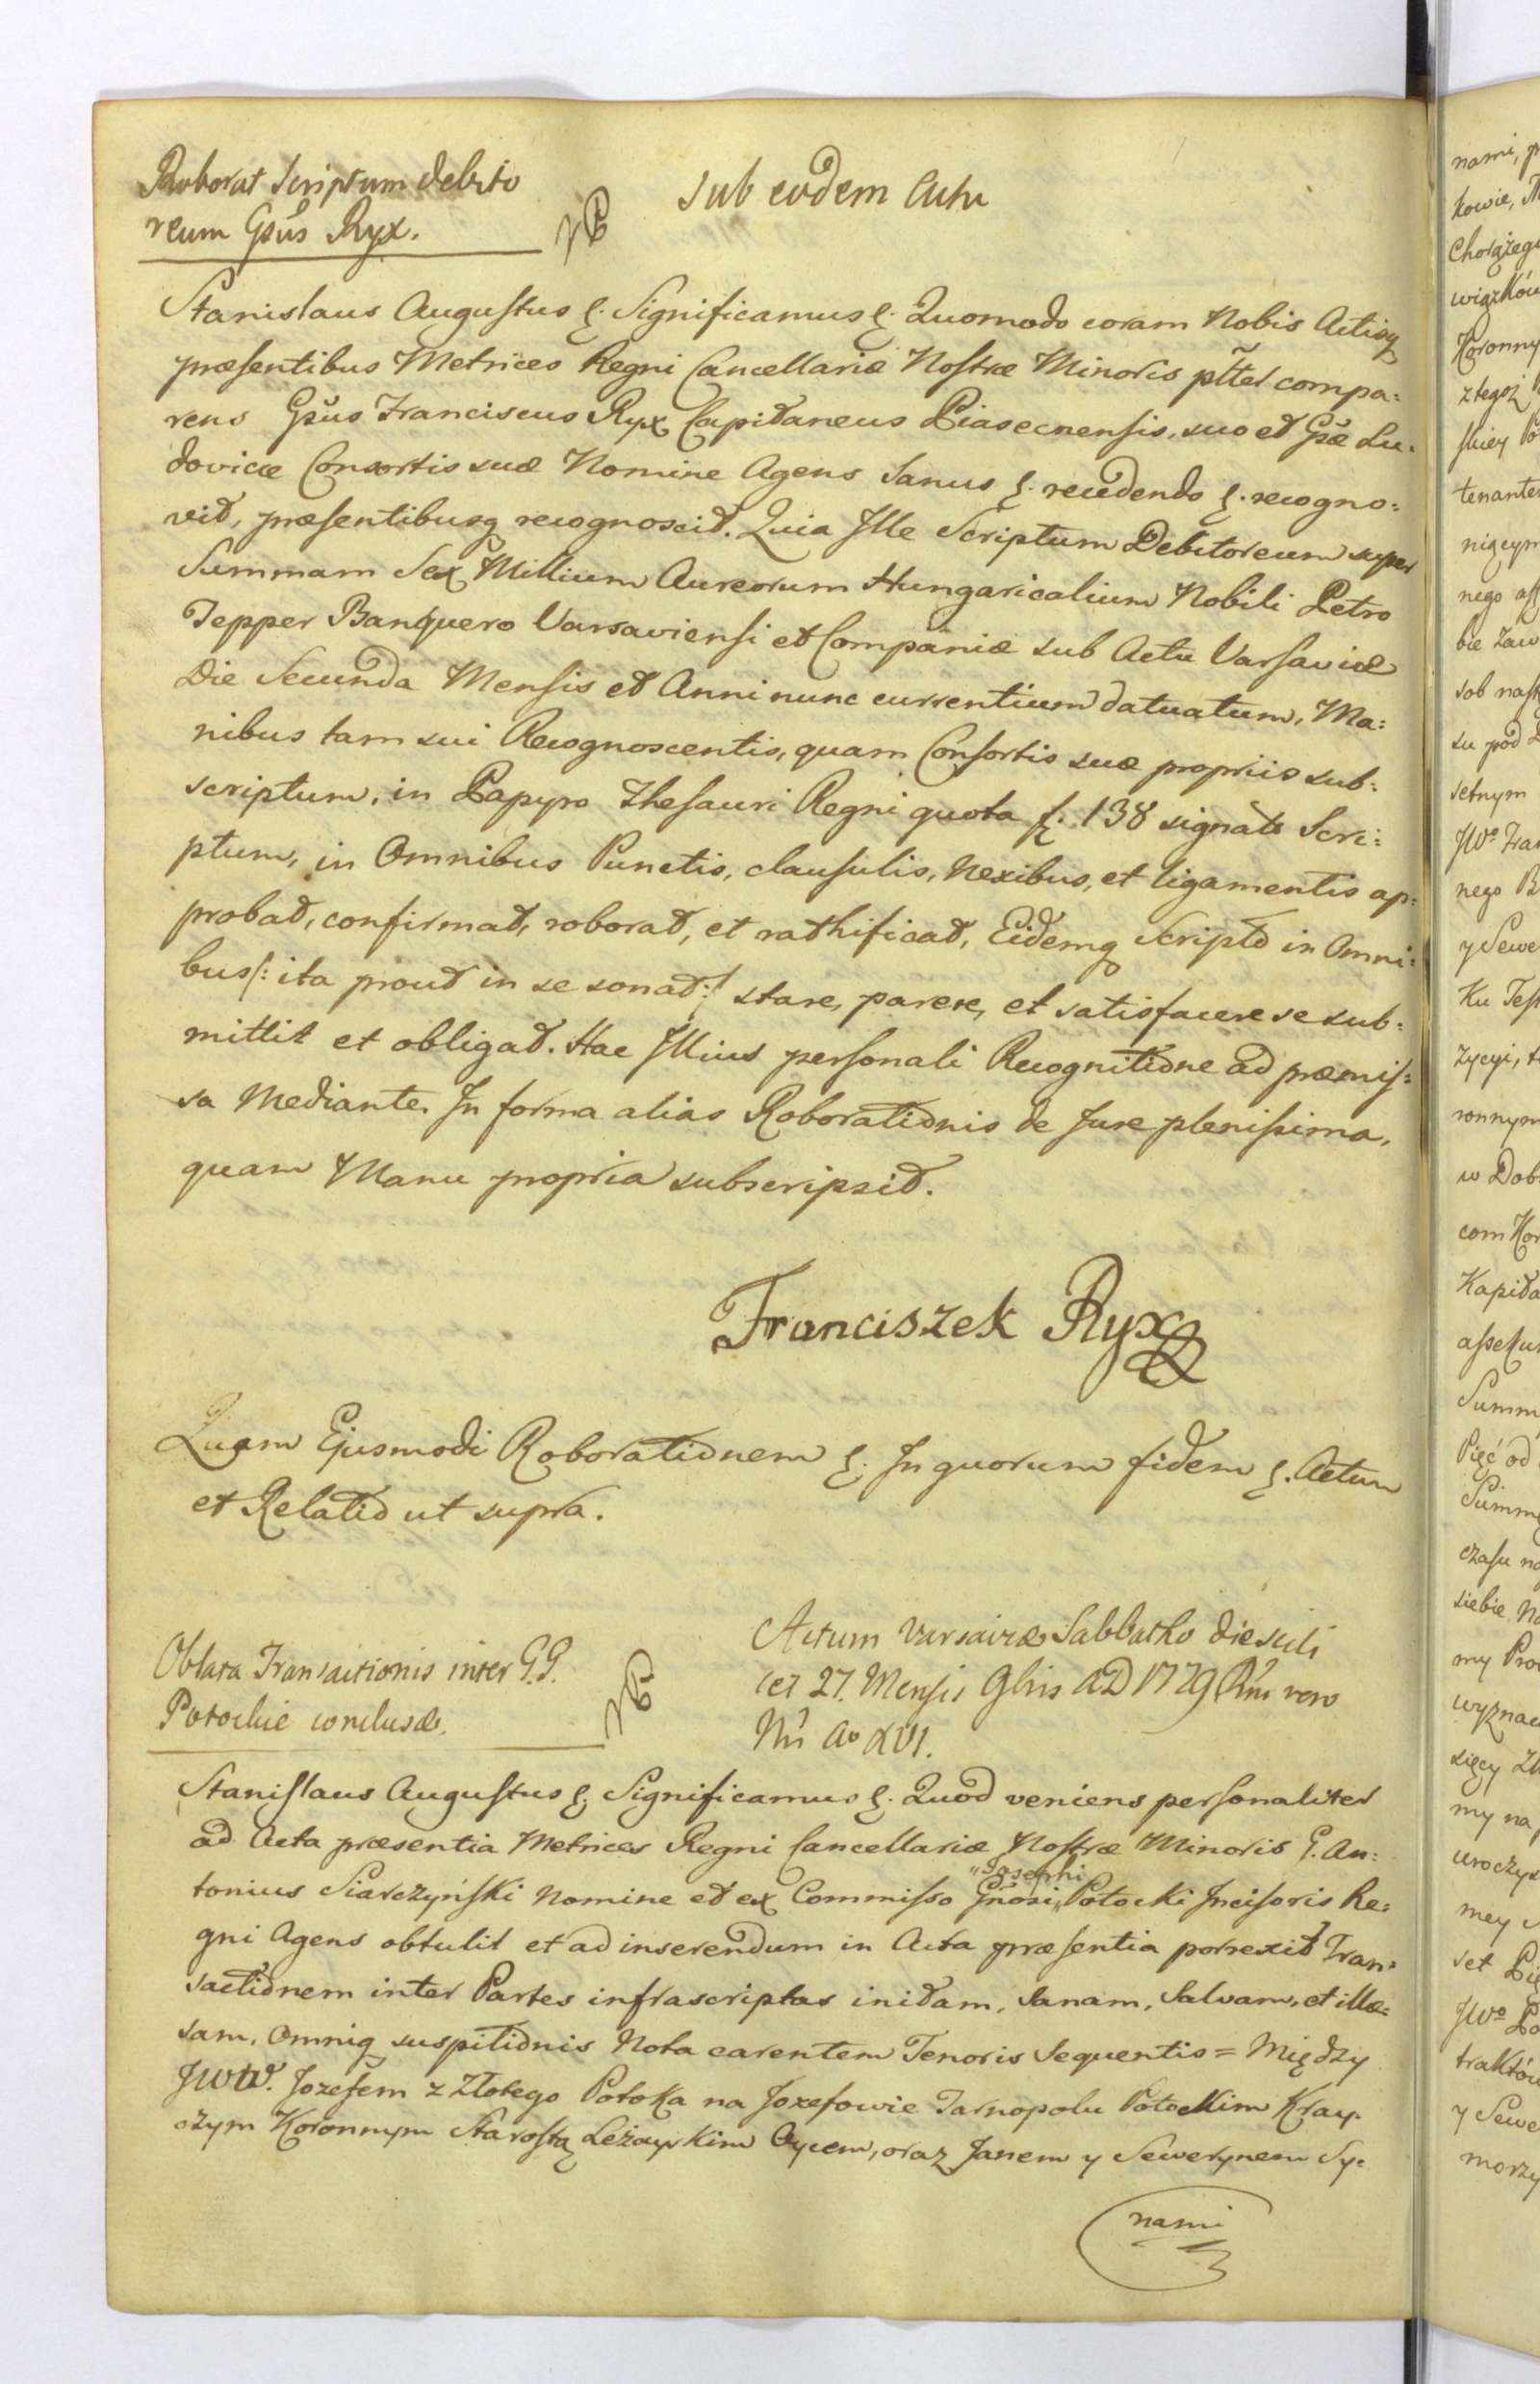 Roborat Scriptum debito
reum Gsus Ryx.
Sub eodem Actu
Stanislaus Augustus &. Significamus &. Quomodo coram Nobis Actisq
præsentibus Metrices Regni Cancellariæ Nostræ Minoris plter compa:
rens Gsus Franciscus Ryx Capitaneus Piasecnensis, suo et Gsæ Lu:
dovicæ Consortis suæ Nomine Agens Sanus &. recedendo &. recogno:
vit, præsentibusq recognoscit. Quia Ille Scriptum Debitoreum super
Summam Sex Millium Aureorum Hungaricalium Nobili Petro
Tepper Banquero Varsaviensi et Companiæ sub Actu Varsaviæ
Die Secunda Mensis et Anni nunc currentium datuatum, Ma:
nibus tam sui Recognoscentis, quam Consortis suæ propriis sub:
scriptum, in Papyro Thesauri Regni quota f. 138 signato Scri:
ptum, in Omnibus Punctis, clausulis, Nexibus, et ligamentis ap:
probat, confirmat, roborat, et rathificat, Eidemq Scripto in Omni:
bus /: ita prout in se sonat :/ stare, parere, et satisfacere se sub:
mittit et obligat. Hac Illius personali Recognitione ad præmis:
sa Mediante. In forma alias Roborationis de Jure plenissima,
quam Manu propria subscripsit.
Franciszek Ryx
Quam Ejusmodi Roborationem &. In quorum fidem &. Actum
et Relatio ut supra.
Oblata Transactionis inter G.G.
Potockie conclusæ.
Actum Varsaviæ Sabbatho die scili
cet 27. Mensis 9bris AD 1779 Rni vero
Nri Ao XVI.
Stanislaus Augustus &. Significamus &. Quod veniens personaliter
ad Acta præsentia Metrices Regni Cancellariæ Nostræ Minoris G. An:
tonius Siarczyński Nomine et ex Commisso Gnosi "Josephi" Potocki Incisoris Re:
gni Agens obtulit et ad inserendum in Acta præsentia porrexit Tran:
sactionem inter Partes infrascriptas initam, Sanam, Salvam, et illæ:
sam, Omniq suspitionis Nota carentem Tenoris Sequentis = Między
JWW. Jozefem z Złotego Potoka na Jozefowie Tarnopolu Potockim Kray:
czym Koronnym Starostą Leżayskim Oycem, oraz Janem y Sewerynem Sy:
nami
nami, p
kowie,
Chorążego
wiązków
Koronny
z tegoż
skiey
tenante
nego
bie Zaw
sob nast
su pod
setnym
JWo Fra
nego B
y Sewe
Ku Tes
życyi, t
ronnym
w Dob
com Kor
Kapita
assekur
Summ
Pięć od
Summę
czasu na
siebie. Na
my Pro
wyznac
sięcy Zł
my na
uroczys
mey
set Pię
JWo Po
traktów
y Sewe
morzy